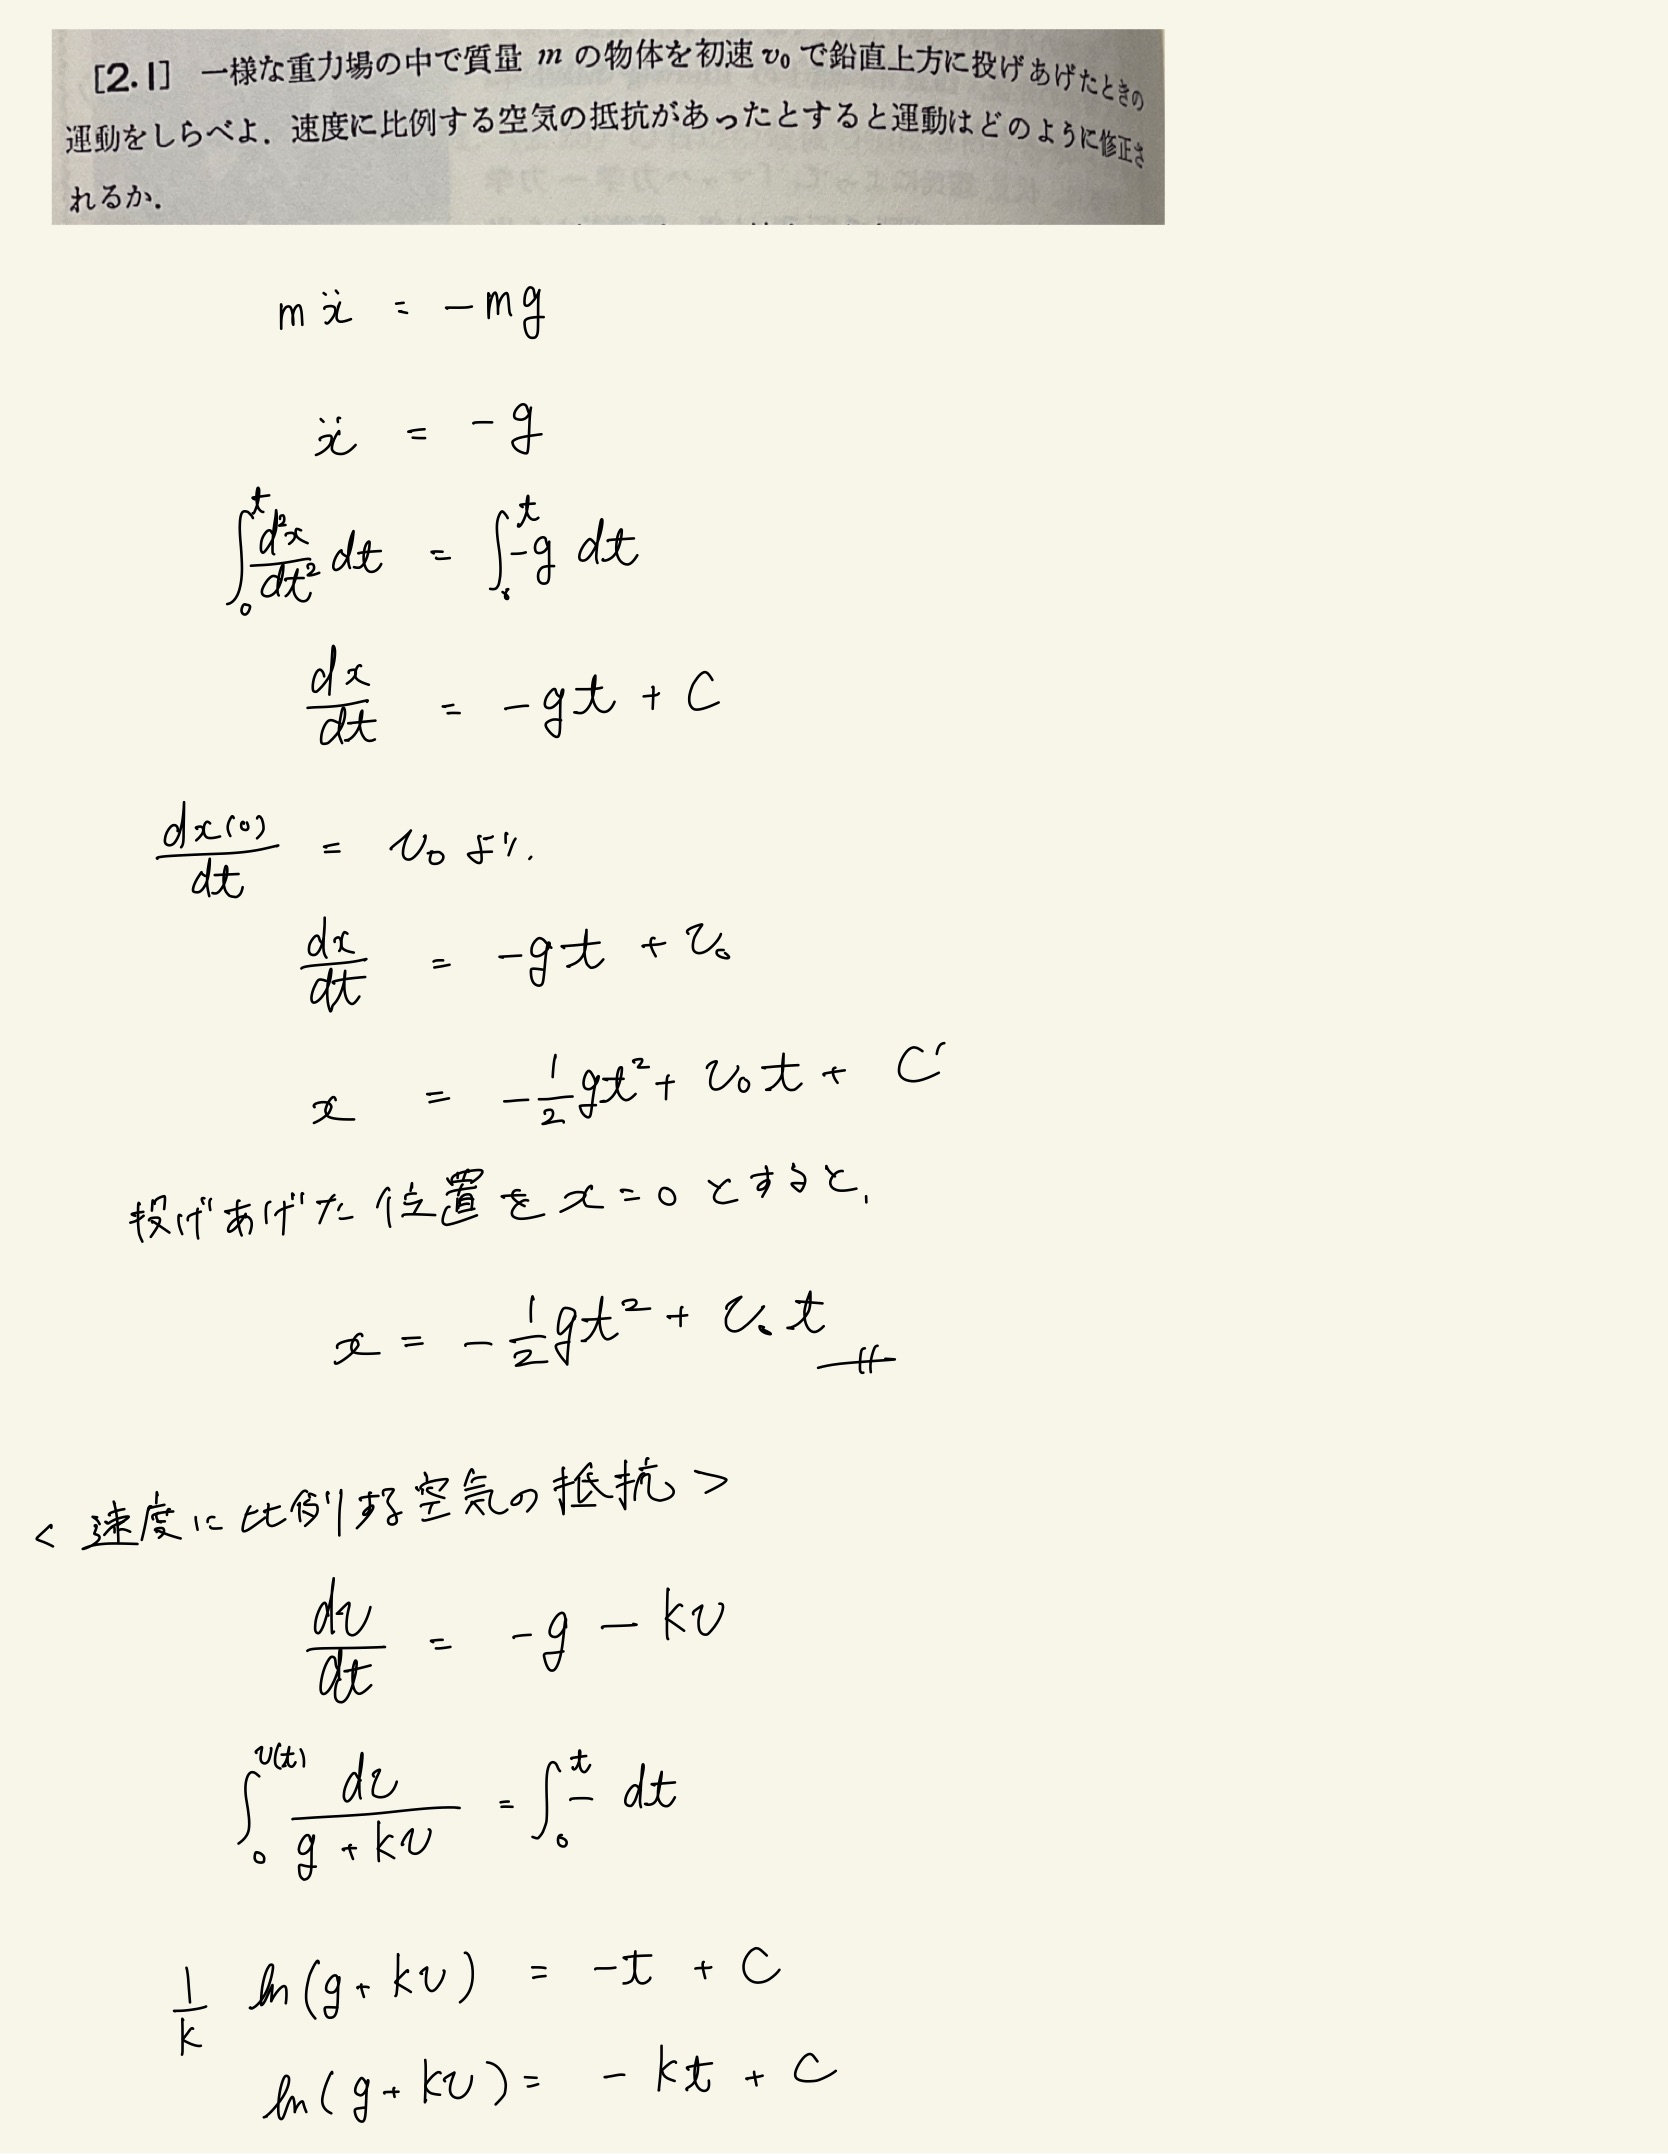 [2.1] 一様な重力場の中で質量 m の物体を初速 v₀ で鉛直上方に投げあげたときの
運動をしらべよ．速度に比例する空気の抵抗があったとすると運動はどのように修正さ
れるか．
mẍ = -mg
ẍ = -g
∫₀ᵗ d²x/dt² dt = ∫₀ᵗ -g dt
dx/dt = -gt + C
dx(0)/dt = v₀ より.
dx/dt = -gt + v₀
x = -1/2 gt² + v₀t + C′
投げあげた位置を x = 0 とすると,
x = -1/2 gt² + v₀t
< 速度に比例する空気の抵抗 >
dv/dt = -g - kv
∫₀^v(t) dv/(g + kv) = ∫₀ᵗ - dt
1/k ln(g + kv) = -t + C
ln(g + kv) = -kt + C